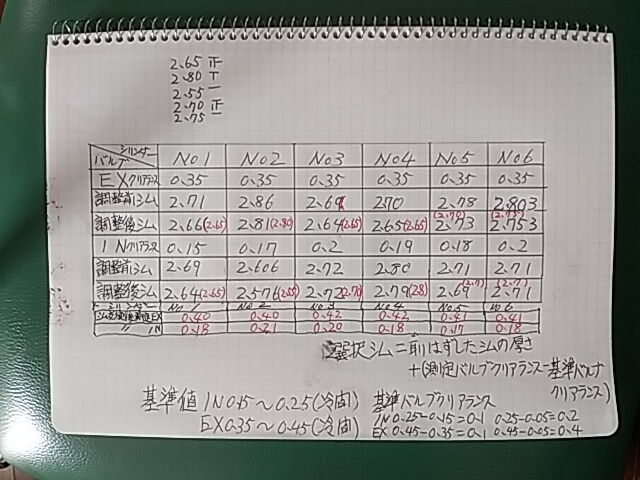 2.65 正
2.80 T
2.55 一
2.70 正
2.75 一
シリンダー
バルブ No1 No2 No3 No4 No5 No6
EXクリアランス 0.35 0.35 0.35 0.35 0.35 0.35
調整前シム 2.71 2.86 2.69 2.70 2.78 2.803
調整後シム 2.66(2.65) 2.81(2.80) 2.64(2.65) 2.65(2.65) 2.73(2.70) 2.753(2.75)
INクリアランス 0.15 0.17 0.2 0.19 0.18 0.2
調整前シム 2.69 2.606 2.72 2.80 2.71 2.71
調整後シム 2.64(2.65) 2.576(2.55) 2.72(2.70) 2.79(2.8) 2.69(2.7) 2.71(2.7)
シリンダー No1 No2 No3 No4 No5 No6
シム交換後測定値EX 0.40 0.40 0.42 0.42 0.41 0.41
〃 IN 0.18 0.21 0.20 0.18 0.17 0.18
選択シム=取はずしたシムの厚さ
+(測定バルブクリアランス−基準バルブ
クリアランス)
基準値 IN0.15~0.25(冷間)
EX0.35~0.45(冷間)
基準バルブクリアランス
IN 0.25−0.15=0.1 0.25−0.05=0.2
EX 0.45−0.35=0.1 0.45−0.05=0.4